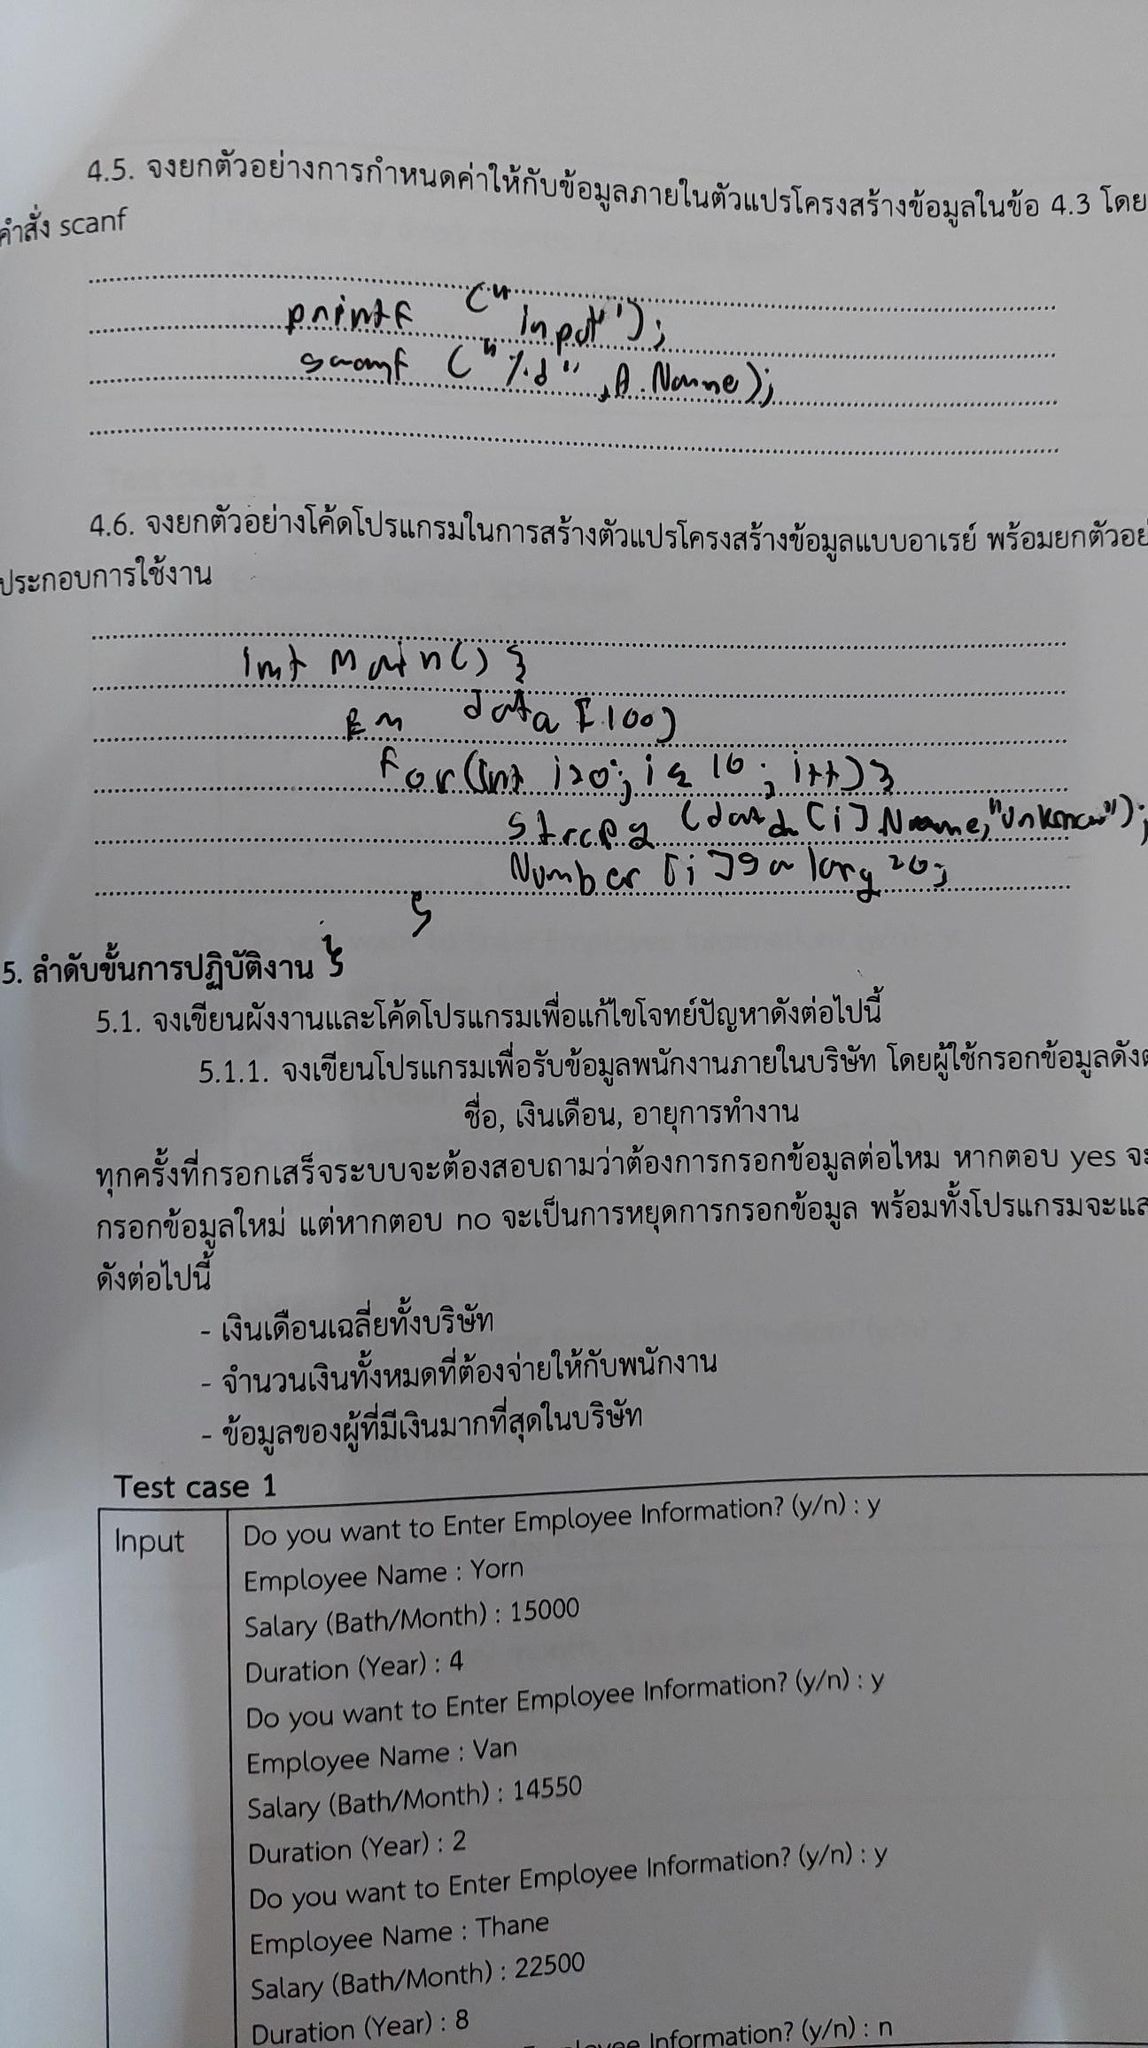 4.5. จงยกตัวอย่างการกำหนดค่าให้กับข้อมูลภายในตัวแปรโครงสร้างข้อมูลในข้อ 4.3 โดย
คำสั่ง scanf
printf ("input");
scanf ("%d", A.Name);
4.6. จงยกตัวอย่างโค้ดโปรแกรมในการสร้างตัวแปรโครงสร้างข้อมูลแบบอาเรย์ พร้อมยกตัวอย
ประกอบการใช้งาน
int main() {
Em data [100]
for(int i=0; i≤10; i++) {
strcpy (data [i] Name,
Number [i] Salary =0;
}
}
5. ลำดับขั้นการปฏิบัติงาน
5.1. จงเขียนผังงานและโค้ดโปรแกรมเพื่อแก้ไขโจทย์ปัญหาดังต่อไปนี้
5.1.1. จงเขียนโปรแกรมเพื่อรับข้อมูลพนักงานภายในบริษัท โดยผู้ใช้กรอกข้อมูลดังต
ชื่อ, เงินเดือน, อายุการทำงาน
ทุกครั้งที่กรอกเสร็จระบบจะต้องสอบถามว่าต้องการกรอกข้อมูลต่อไหม หากตอบ yes จะ
กรอกข้อมูลใหม่ แต่หากตอบ no จะเป็นการหยุดการกรอกข้อมูล พร้อมทั้งโปรแกรมจะแส
ดังต่อไปนี้
- เงินเดือนเฉลี่ยทั้งบริษัท
- จำนวนเงินทั้งหมดที่ต้องจ่ายให้กับพนักงาน
- ข้อมูลของผู้ที่มีเงินมากที่สุดในบริษัท
Test case 1
Input
Do you want to Enter Employee Information? (y/n) : y
Employee Name : Yorn
Salary (Bath/Month) : 15000
Duration (Year) : 4
Do you want to Enter Employee Information? (y/n) : y
Employee Name : Van
Salary (Bath/Month) : 14550
Duration (Year) : 2
Do you want to Enter Employee Information? (y/n) : y
Employee Name : Thane
Salary (Bath/Month) : 22500
Duration (Year) : 8
Employee Information? (y/n) : n